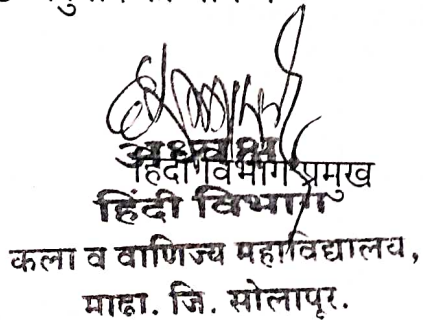 अध्यक्ष
हिंदी विभाग प्रमुख
हिंदी विभाग
कला व वाणिज्य महाविद्यालय,
माढा. जि. सोलापूर.